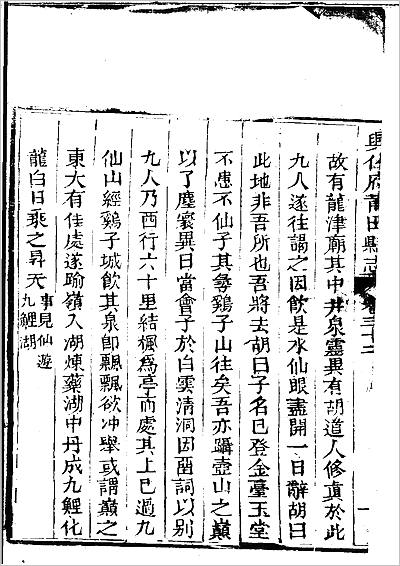 興化府莆田縣志 卷三十二 一
故有龍津廟其中井泉靈異有胡道人修真於此
九人遂往謁之因飲是水仙眼盡開一日辭胡曰
此地非吾所也吾將去胡曰子名已登金臺玉堂
不患不仙子其鷄子山往矣吾亦躡壺山之巔
以了塵寰異日當會子於白雲清洞因留詞以別
九人乃西行六十里結楓為亭而處其上已過九
仙山經鷄子城飲其泉卽飄飄欲冲舉或謂巔之
東大有佳處遂踰嶺入湖煉藥湖中丹成九鯉化
龍白日乘之昇天
事見仙遊
九鯉湖